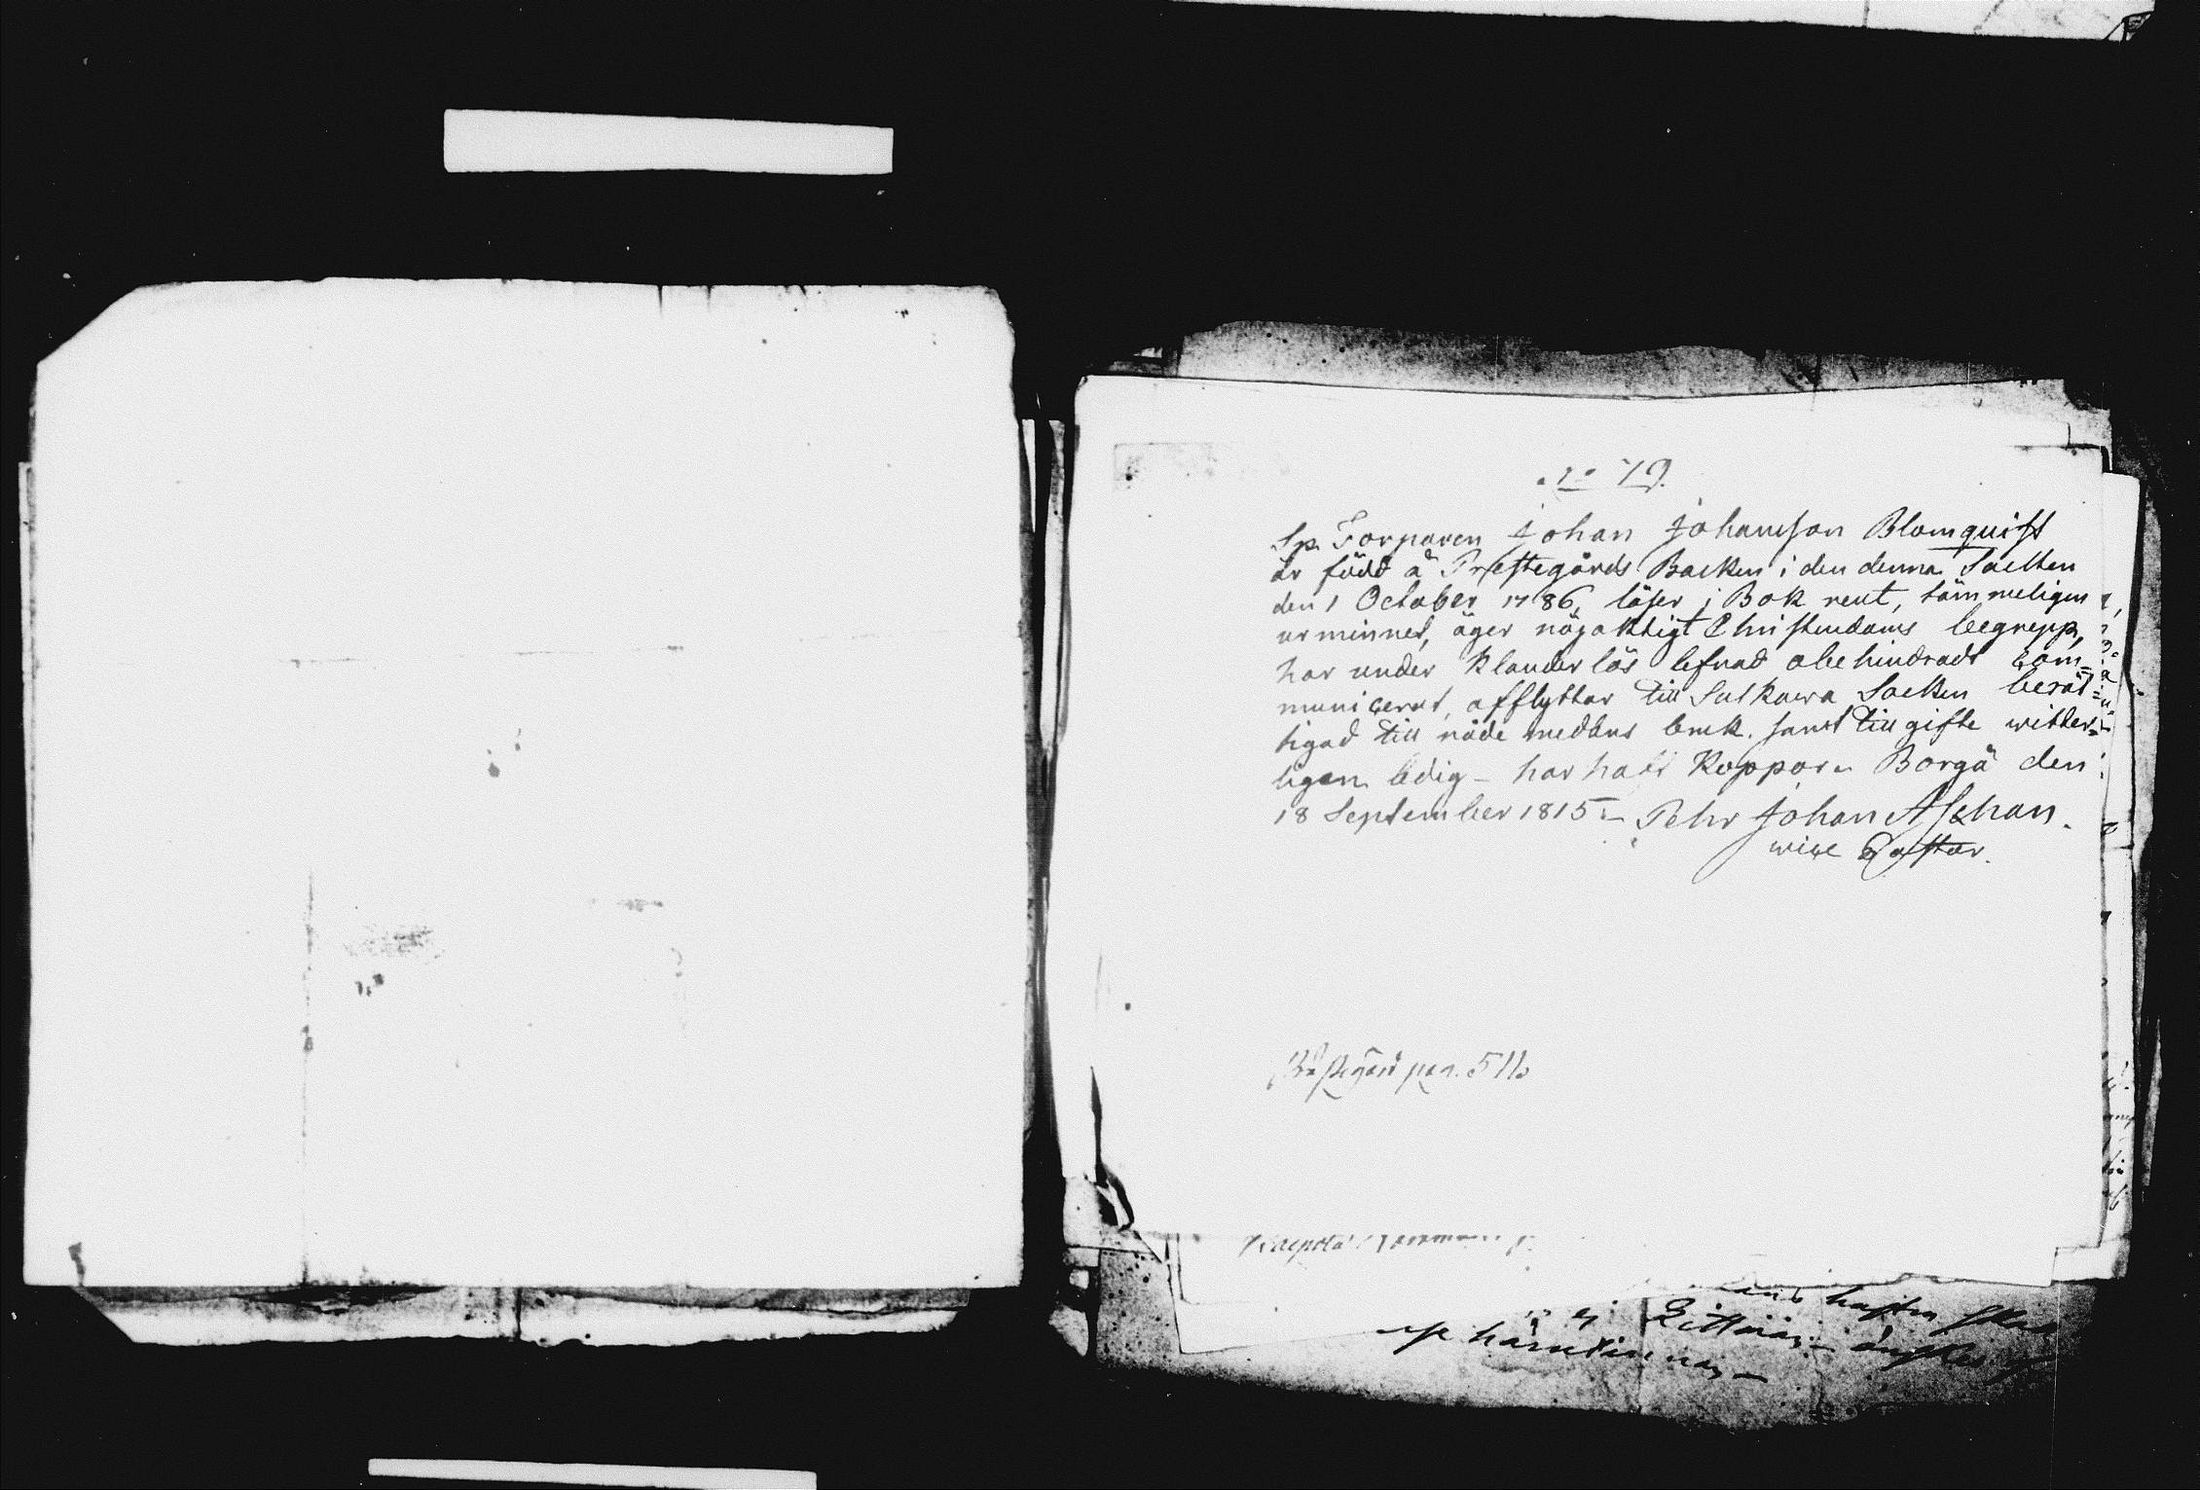 no 79.
Sp. Torparen Johan Johansson Blomquist
är född å Prestegårds Backen i den denna Socken
den 1 October 1786, läser i Bok rent, tämmeligen
ur minnet, äger nöjaktigt Christendoms begrepp,
har under klanderlös lefnad obehindradt com=
municerat, afflyttar till Sulkawa Socken berät=
tigad till nåde medlens bruk, samt till gifte witter=
ligen ledig – har haft Koppor. Borgå den
18 September 1815 – Pehr Johan Aschan.
wice Pastor.
Prästegård pag. 516